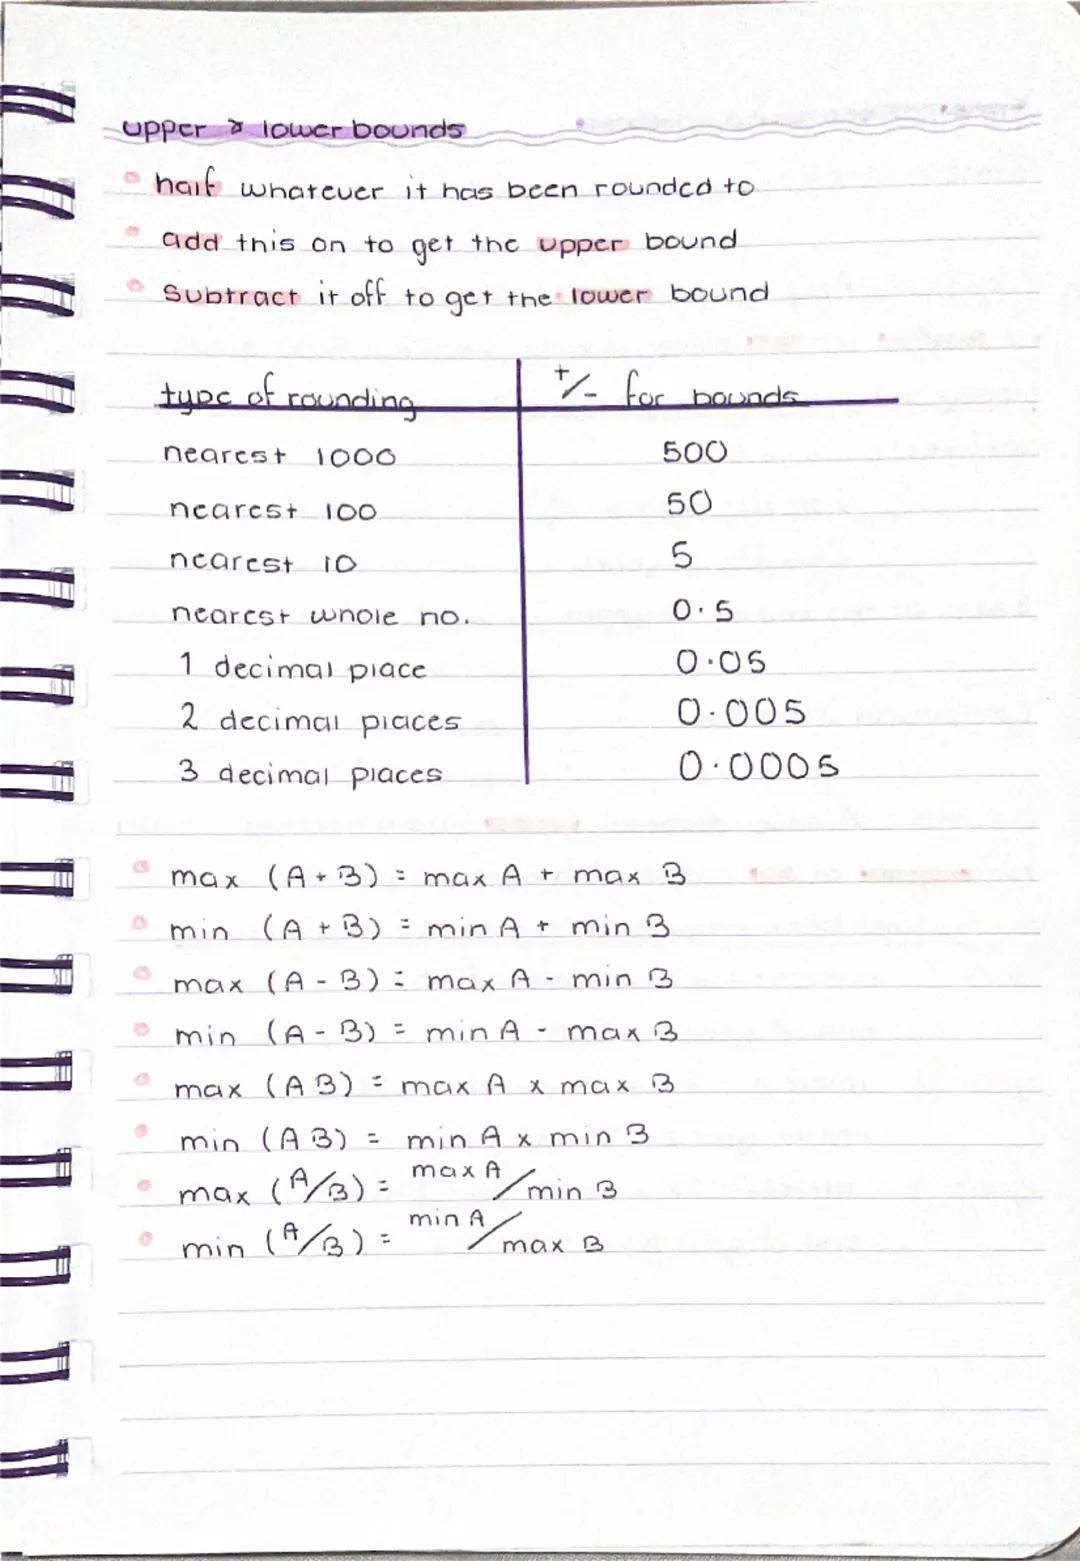 upper & lower bounds
half whatever it has been rounded to
add this on to get the upper bound
Subtract it off to get the lower bound
type of rounding +/- for bounds
nearest 1000 500
nearest 100 50
nearest 10 5
nearest whole no. 0.5
1 decimal place 0.05
2 decimal places 0.005
3 decimal places 0.0005
max (A + B) = max A + max B
min (A + B) = min A + min B
max (A - B) = max A - min B
min (A - B) = min A - max B
max (AB) = max A x max B
min (AB) = min A x min B
max (A/B) = max A/min B
min (A/B) = min A/max B